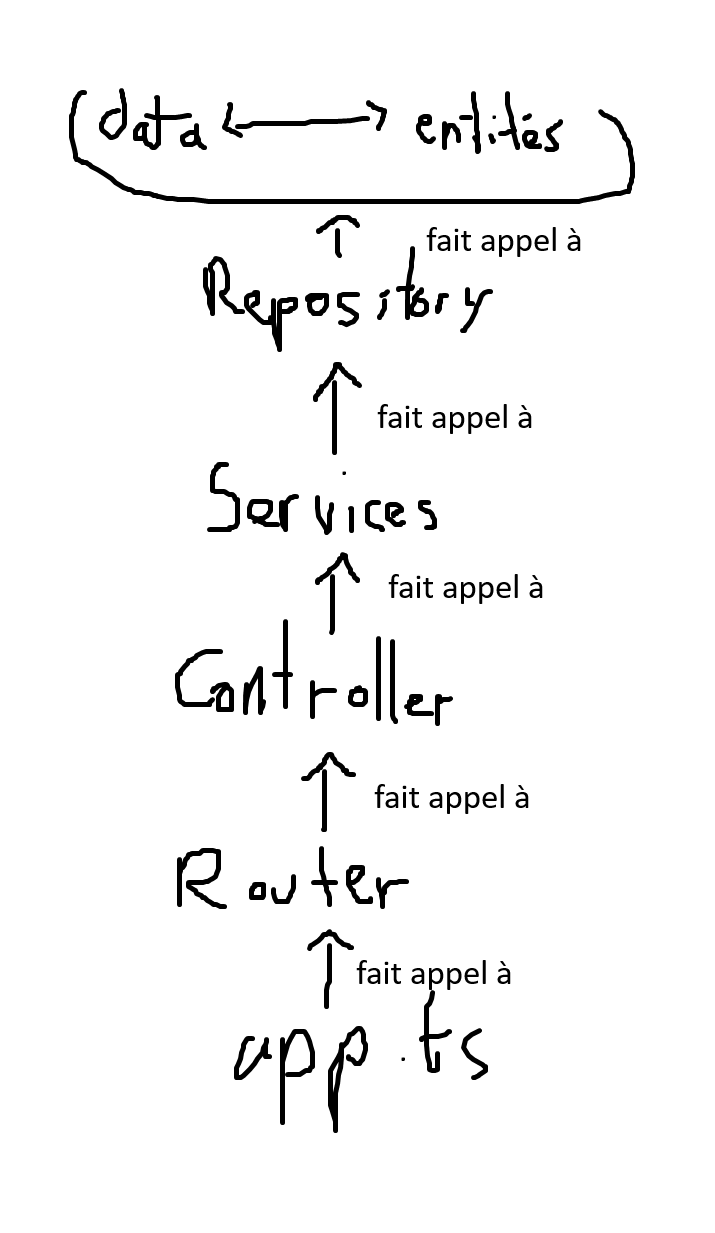 data entités
fait appel à
Repository
fait appel à
Services
fait appel à
Controller
fait appel à
Router
fait appel à
app.ts